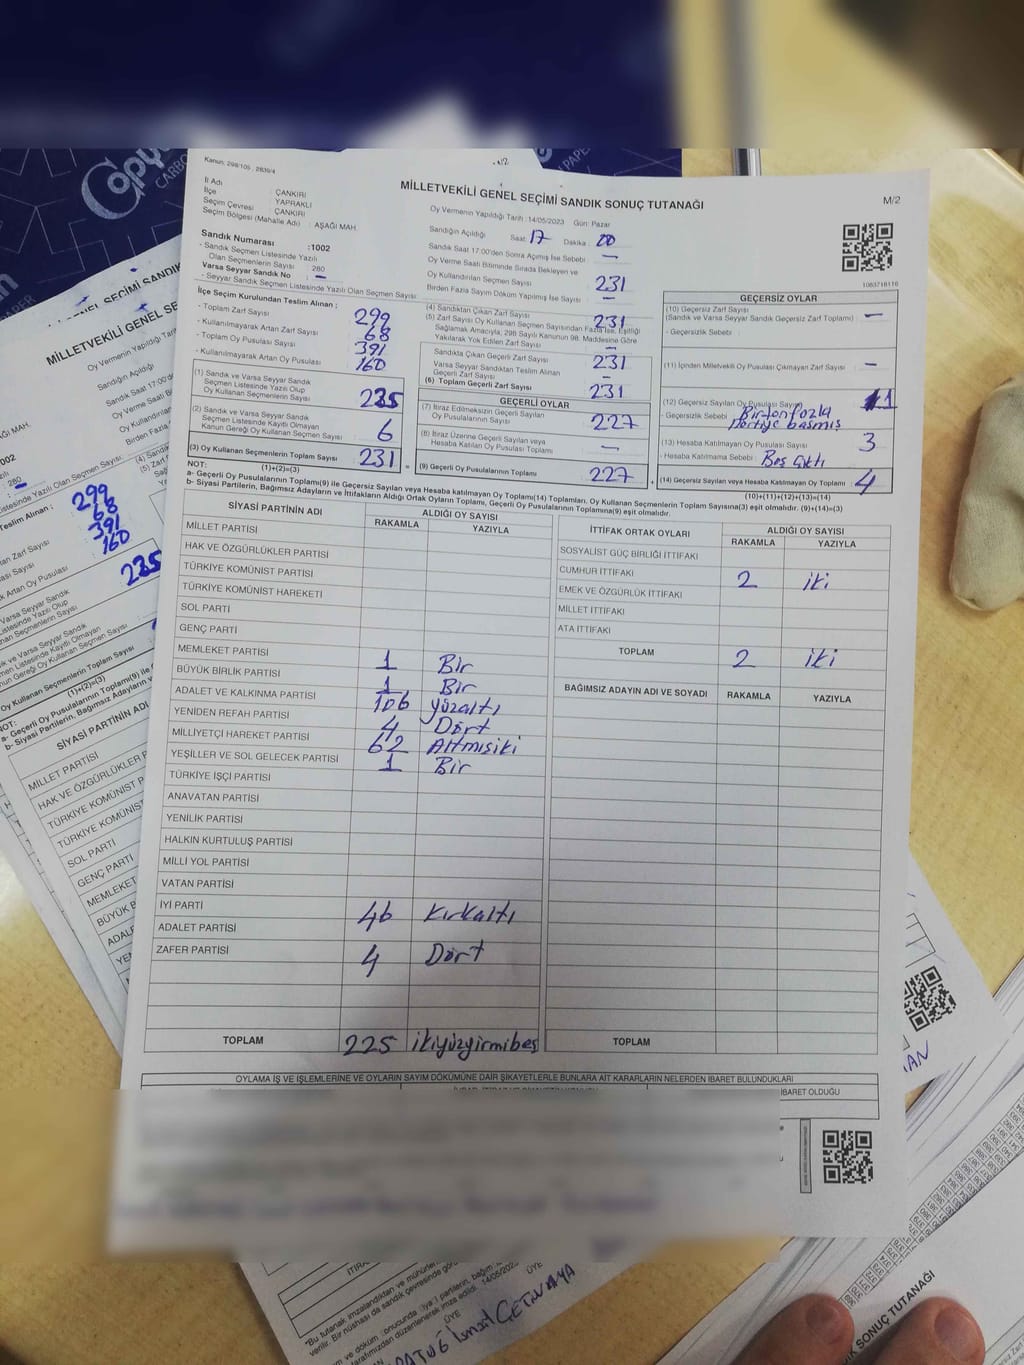 Copy
CARBO
PAPER
Kanun: 298/105 , 2839/4
MİLLETVEKİLİ GENEL SEÇİMİ SANDIK SONUÇ TUTANAĞI
M/2
İl Adı : ÇANKIRI
İlçe : YAPRAKLI
Seçim Çevresi : ÇANKIRI
Seçim Bölgesi (Mahalle Adı) : AŞAĞI MAH.
Sandık Numarası :1002
- Sandık Seçmen Listesinde Yazılı
Olan Seçmenlerin Sayısı : 280
Varsa Seyyar Sandık No : —
- Seyyar Sandık Seçmen Listesinde Yazılı Olan Seçmen Sayısı:
Oy Vermenin Yapıldığı Tarih :14/05/2023 Gün: Pazar
Sandığın Açıldığı Saat: 17 Dakika: 00
Sandık Saat 17:00'den Sonra Açılmış İse Sebebi —
Oy Verme Saati Bitiminde Sırada Bekleyen ve
Oy Kullandırılan Seçmen Sayısı 231
Birden Fazla Sayım Döküm Yapılmış İse Sayısı —
1083718116
İlçe Seçim Kurulundan Teslim Alınan ;
- Toplam Zarf Sayısı 299
- Kullanılmayarak Artan Zarf Sayısı 68
- Toplam Oy Pusulası Sayısı 391
- Kullanılmayarak Artan Oy Pusulası 160
(1) Sandık ve Varsa Seyyar Sandık
Seçmen Listesinde Yazılı Olup
Oy Kullanan Seçmenlerin Sayısı 225
(2) Sandık ve Varsa Seyyar Sandık
Seçmen Listesinde Kayıtlı Olmayan
Kanun Gereği Oy Kullanan Seçmen Sayısı 6
(3) Oy Kullanan Seçmenlerin Toplam Sayısı 231
(1)+(2)=(3)
(4) Sandıktan Çıkan Zarf Sayısı 231
(5) Zarf Sayısı Oy Kullanan Seçmen Sayısından Fazla İse, Eşitliği
Sağlamak Amacıyla, 298 Sayılı Kanunun 98. Maddesine Göre
Yakılarak Yok Edilen Zarf Sayısı —
Sandıkta Çıkan Geçerli Zarf Sayısı 231
Varsa Seyyar Sandıktan Teslim Alınan
Geçerli Zarf Sayısı —
(6) Toplam Geçerli Zarf Sayısı 231
GEÇERLİ OYLAR
(7) İtiraz Edilmeksizin Geçerli Sayılan
Oy Pusulalarının Sayısı 227
(8) İtiraz Üzerine Geçerli Sayılan veya
Hesaba Katılan Oy Pusulası Toplamı —
(9) Geçerli Oy Pusulalarının Toplamı 227
GEÇERSİZ OYLAR
(10) Geçersiz Zarf Sayısı
(Sandık ve Varsa Seyyar Sandık Geçersiz Zarf Toplamı) : —
- Geçersizlik Sebebi :
(11) İçinden Milletvekili Oy Pusulası Çıkmayan Zarf Sayısı —
(12) Geçersiz Sayılan Oy Pusulası Sayısı 1
- Geçersizlik Sebebi : Birden fazla
partiye basmış
(13) Hesaba Katılmayan Oy Pusulası Sayısı 3
- Hesaba Katılmama Sebebi : Boş çıktı
(14) Geçersiz Sayılan veya Hesaba Katılmayan Oy Toplamı 4
(10)+(11)+(12)+(13)=(14)
NOT:
a- Geçerli Oy Pusulalarının Toplamı(9) ile Geçersiz Sayılan veya Hesaba Katılmayan Oy Toplamı(14) Toplamları, Oy Kullanan Seçmenlerin Toplam Sayısına(3) eşit olmalıdır. (9)+(14)=(3)
b- Siyasi Partilerin, Bağımsız Adayların ve İttifakların Aldığı Ortak Oyların Toplamı, Geçerli Oy Pusulalarının Toplamına(9) eşit olmalıdır.
SİYASİ PARTİNİN ADI ALDIĞI OY SAYISI
RAKAMLA YAZIYLA
MİLLET PARTİSİ
HAK VE ÖZGÜRLÜKLER PARTİSİ
TÜRKİYE KOMÜNİST PARTİSİ
TÜRKİYE KOMÜNİST HAREKETİ
SOL PARTİ
GENÇ PARTİ
MEMLEKET PARTİSİ 1 Bir
BÜYÜK BİRLİK PARTİSİ 1 Bir
ADALET VE KALKINMA PARTİSİ 106 yüzaltı
YENİDEN REFAH PARTİSİ 4 Dört
MİLLİYETÇİ HAREKET PARTİSİ 62 Altmışiki
YEŞİLLER VE SOL GELECEK PARTİSİ 1 Bir
TÜRKİYE İŞÇİ PARTİSİ
ANAVATAN PARTİSİ
YENİLİK PARTİSİ
HALKIN KURTULUŞ PARTİSİ
MİLLİ YOL PARTİSİ
VATAN PARTİSİ
İYİ PARTİ 46 Kırkaltı
ADALET PARTİSİ
ZAFER PARTİSİ 4 Dört
TOPLAM 225 ikiyüzyirmibeş
İTTİFAK ORTAK OYLARI ALDIĞI OY SAYISI
RAKAMLA YAZIYLA
SOSYALİST GÜÇ BİRLİĞİ İTTİFAKI
CUMHUR İTTİFAKI 2 iki
EMEK VE ÖZGÜRLÜK İTTİFAKI
MİLLET İTTİFAKI
ATA İTTİFAKI
TOPLAM 2 iki
BAĞIMSIZ ADAYIN ADI VE SOYADI RAKAMLA YAZIYLA
TOPLAM
OYLAMA İŞ VE İŞLEMLERİNE VE OYLARIN SAYIM DÖKÜMÜNE DAİR ŞİKAYETLERLE BUNLARA AİT KARARLARIN NELERDEN İBARET BULUNDUKLARI
İBARET OLDUĞU
MİLLETVEKİLİ GENEL SE
299
68
391
160
235
SİYASİ PARTİNİN ADI
MİLLET PARTİSİ
HAK VE ÖZGÜRLÜKLER P
TÜRKİYE KOMÜNİST P
TÜRKİYE KOMÜNİST
SOL PARTİ
GENÇ PARTİ
MEMLEKET
BÜYÜK B
ADALE
ÜYE
ÜYE
İsmail ÇETİNKAYA
SONUÇ TUTANAĞI